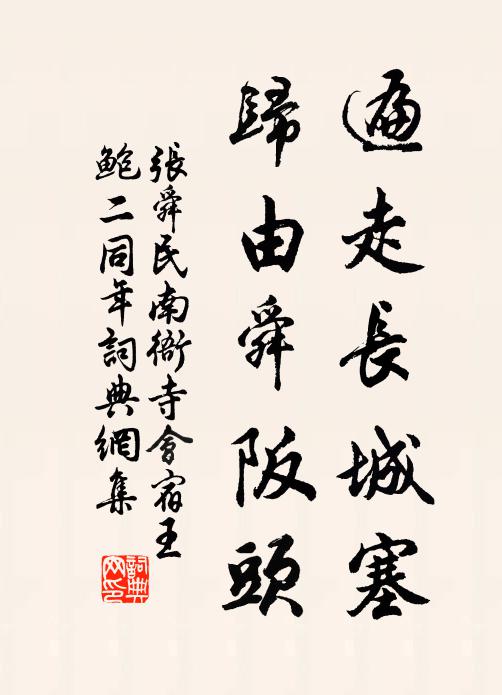 遍走長城塞
歸由舜阪頭
張舜民南衙寺會宿王
鮑二同年詞典網集
詞典
网印